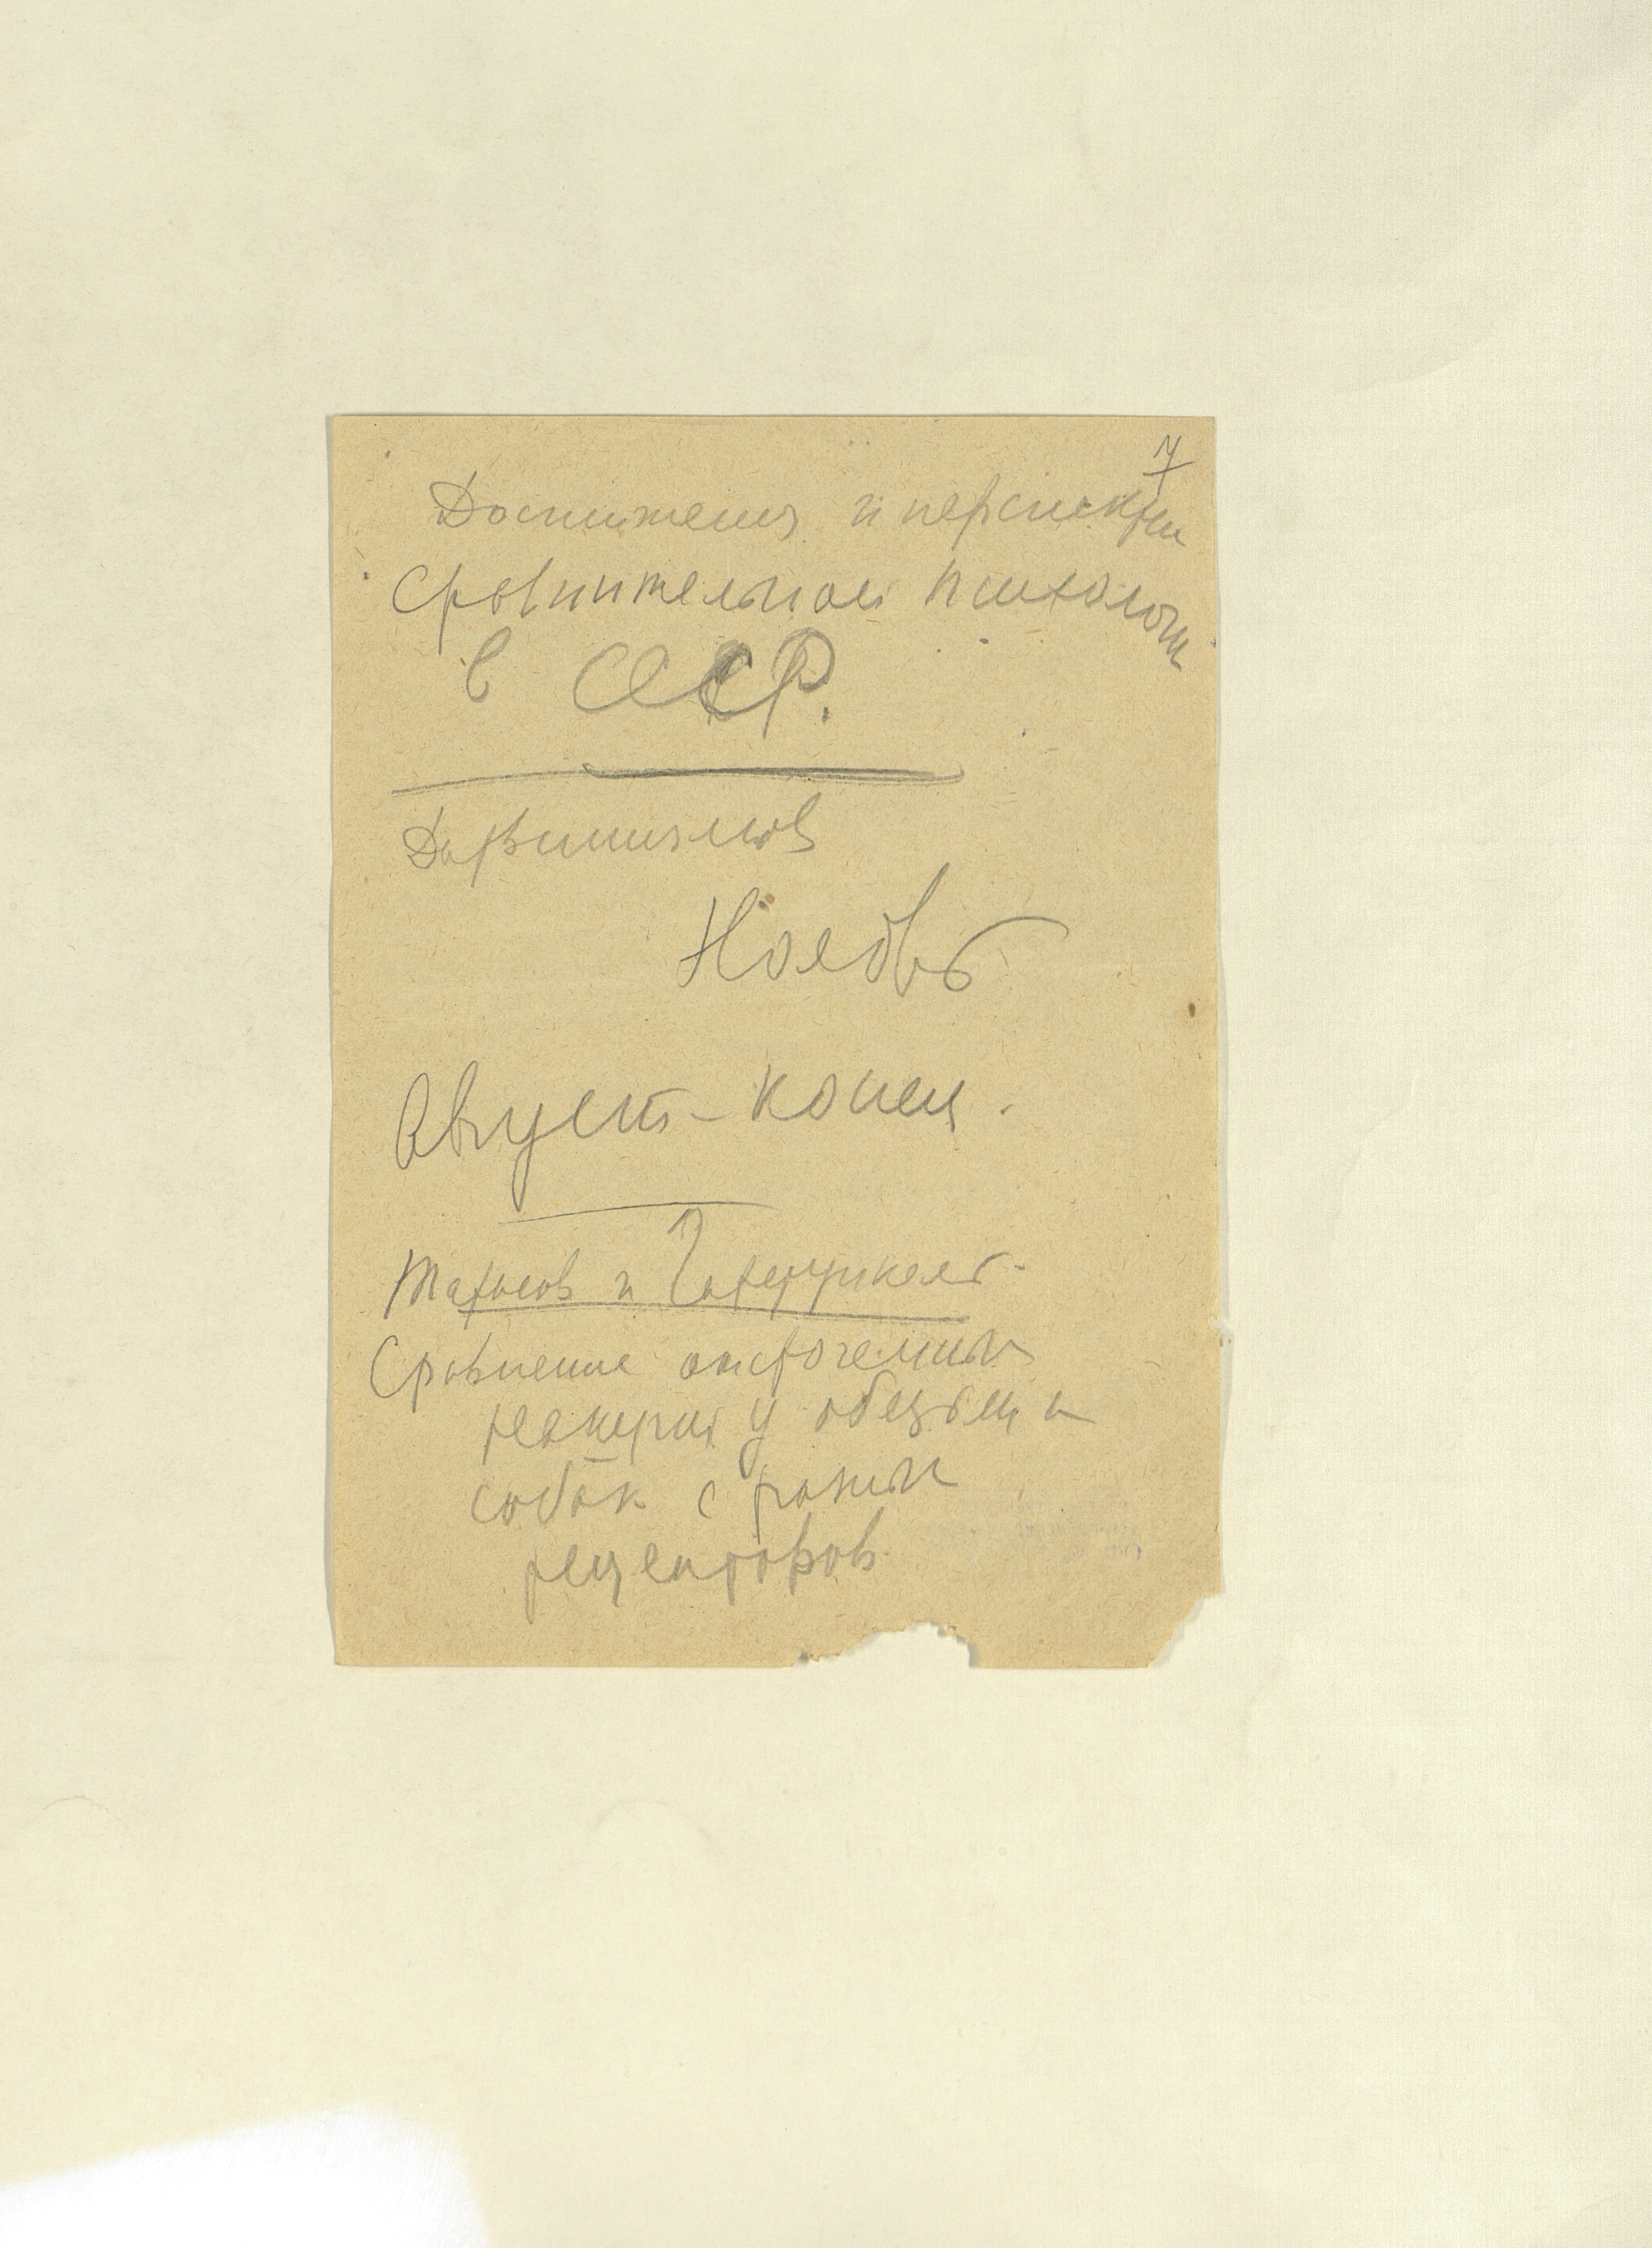 7
Достижения и перспектив
сравнительной психологи
в СССР.
Дарвинизмов
Ноябрь
Август - конец.
и
Сравнение отсроченных
реакций у обезьян и
собак с разных
рецепторов.